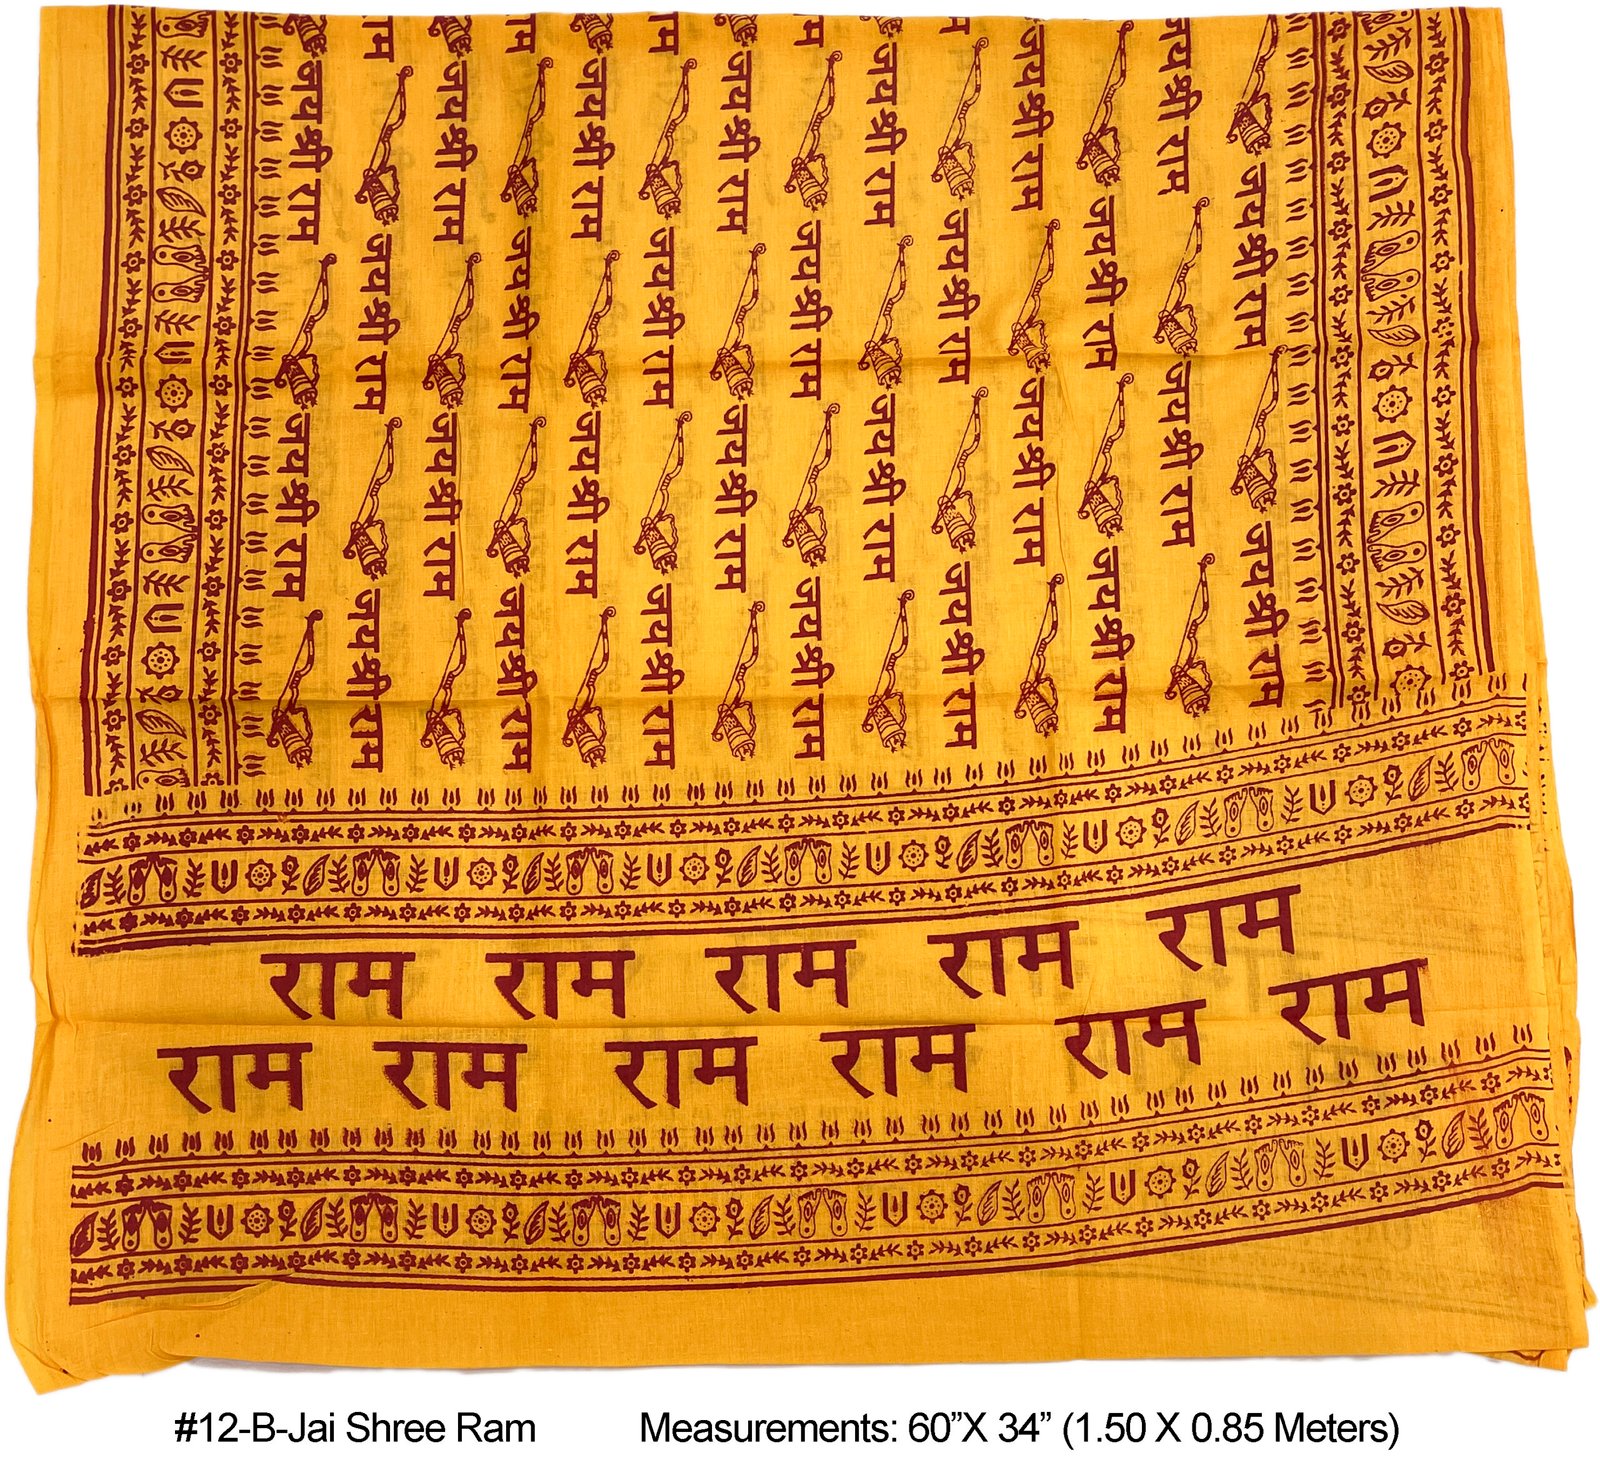 जय श्री राम जय श्री राम
राम जय श्री राम जय श्री राम
जय श्री राम जय श्री राम
राम जय श्री राम जय श्री राम
जय श्री राम जय श्री राम
राम जय श्री राम जय श्री राम
जय श्री राम जय श्री राम
राम जय श्री राम जय श्री राम
जय श्री राम जय श्री राम
जय श्री राम जय श्री राम
जय श्री राम जय श्री राम
जय श्री राम जय श्री राम
जय श्री राम जय श्री राम
जय श्री राम जय श्री राम
राम राम राम राम राम
राम राम राम राम राम राम
#12-B-Jai Shree Ram Measurements: 60”X 34” (1.50 X 0.85 Meters)